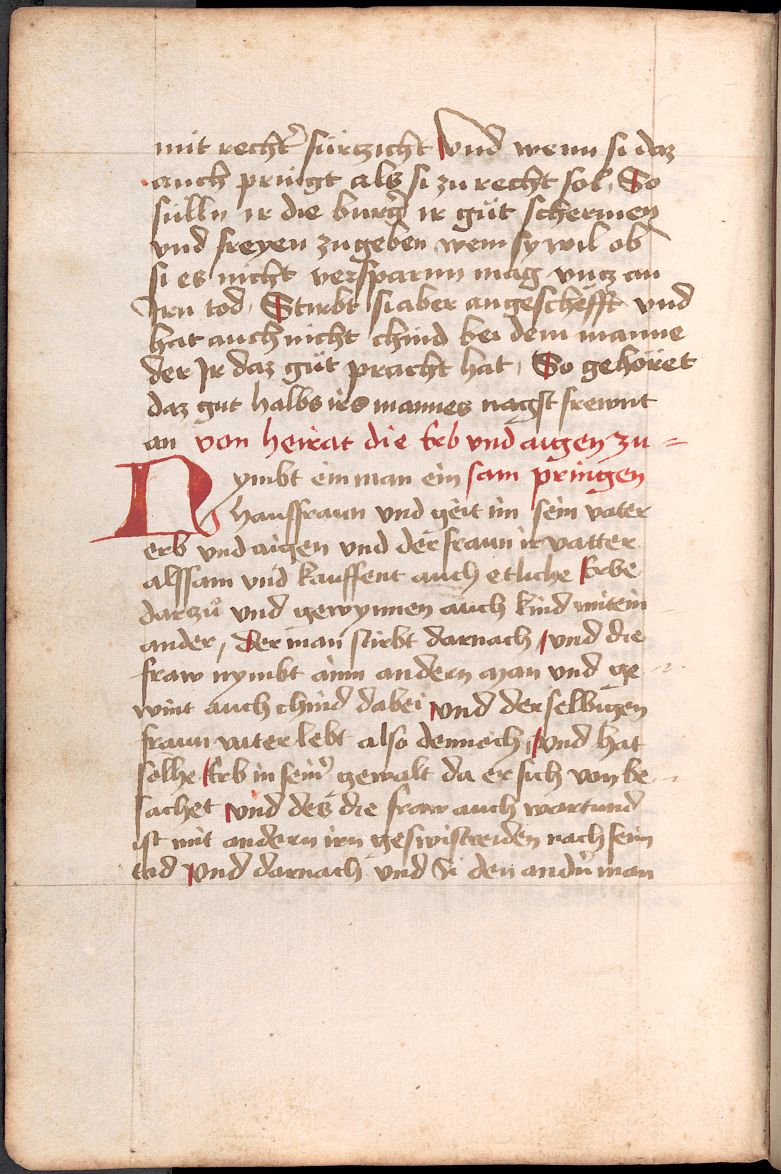 mit recht̾ fürtzicht vnd wenn si daz
auch pringt als si zu recht sol, So
sülln ir die burg̾ ir güt schermen
vnd freyen zugeben wem sy wil ob
si es nicht versparnn mag vncz an
Irn tod, Stirbt si aber angeschëfft vnd
hat auch nicht chind bei dem manne
der Ir daz güt pracht hat, So gehöret
daz gut halbs irs mannes nagst frewnt
an von heirat die Erb vnd aigen zu =
Nymbt ein man ein sam pringen
hausfraun vnd geit im sein vater
erb vnd aigen vnd der fraun ir vatter
alssam vnd kauffent auch etliche Erbe
darzů vnd gewynnen auch kind mitein
ander, Der man stirbt darnach, vnd die
fraw nymbt ainn andern man vnd ge -
wint auch chind dabei vnd derselbigen
fraun vater lebt also dennoch, vnd hat
solhe Erb in sein̾ gewalt da er sich von be -
sachet vnd des die fraw auch wartund
ist mit andern irn geswistreiden nach seim
tod vnd darnach vnd Si den andn̾ man